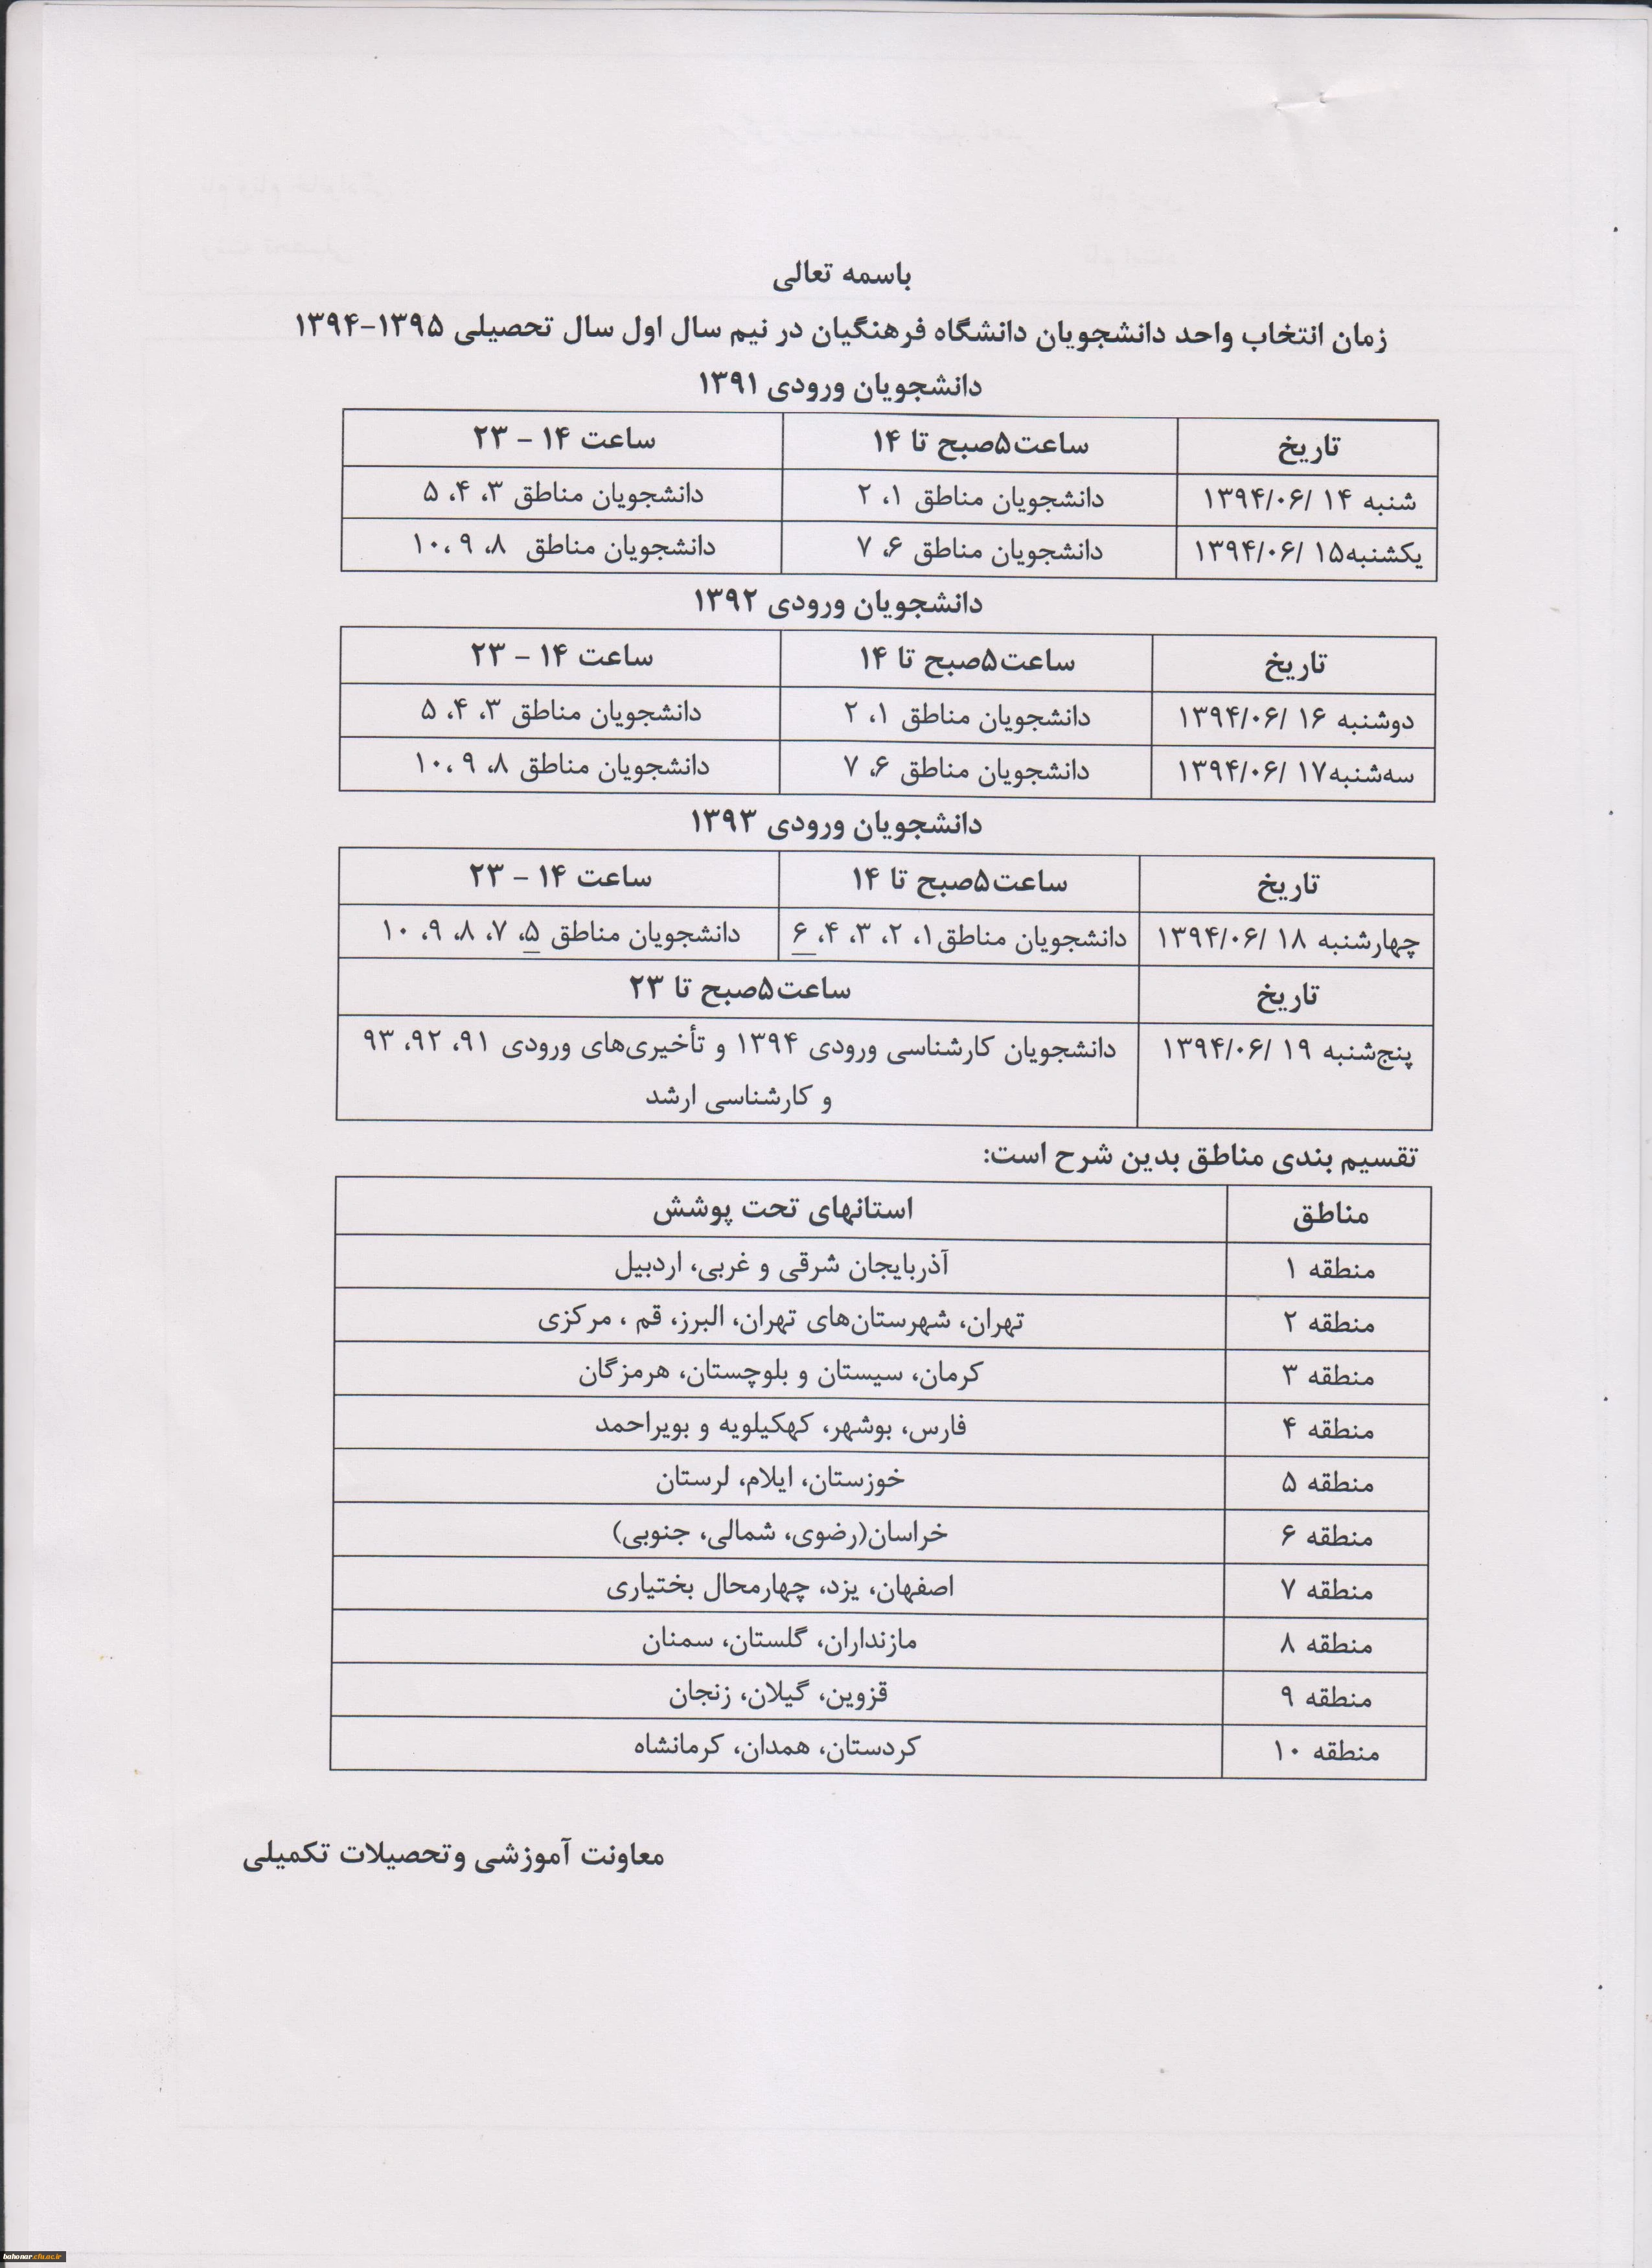 باسمه تعالی
زمان انتخاب واحد دانشجویان دانشگاه فرهنگیان در نیم سال اول سال تحصیلی ۱۳۹۵-۱۳۹۴
دانشجویان ورودی ۱۳۹۱
تاریخ ساعت۵صبح تا ۱۴ ساعت ۱۴ - ۲۳
شنبه ۱۴ /۱۳۹۴/۰۶ دانشجویان مناطق ۱، ۲ دانشجویان مناطق ۳، ۴، ۵
یکشنبه۱۵ /۱۳۹۴/۰۶ دانشجویان مناطق ۶، ۷ دانشجویان مناطق ۸، ۹ ،۱۰
دانشجویان ورودی ۱۳۹۲
تاریخ ساعت۵صبح تا ۱۴ ساعت ۱۴ - ۲۳
دوشنبه ۱۶ /۱۳۹۴/۰۶ دانشجویان مناطق ۱، ۲ دانشجویان مناطق ۳، ۴، ۵
سه‌شنبه۱۷ /۱۳۹۴/۰۶ دانشجویان مناطق ۶، ۷ دانشجویان مناطق ۸، ۹ ،۱۰
دانشجویان ورودی ۱۳۹۳
تاریخ ساعت۵صبح تا ۱۴ ساعت ۱۴ - ۲۳
چهارشنبه ۱۸ /۱۳۹۴/۰۶ دانشجویان مناطق۱، ۲، ۳، ۴، ۶ دانشجویان مناطق ۵، ۷، ۸، ۹، ۱۰
تاریخ ساعت۵صبح تا ۲۳
پنج‌شنبه ۱۹ /۱۳۹۴/۰۶ دانشجویان کارشناسی ورودی ۱۳۹۴ و تأخیری‌های ورودی ۹۱، ۹۲، ۹۳
و کارشناسی ارشد
تقسیم بندی مناطق بدین شرح است:
مناطق استانهای تحت پوشش
منطقه ۱ آذربایجان شرقی و غربی، اردبیل
منطقه ۲ تهران، شهرستان‌های تهران، البرز، قم ، مرکزی
منطقه ۳ کرمان، سیستان و بلوچستان، هرمزگان
منطقه ۴ فارس، بوشهر، کهکیلویه و بویراحمد
منطقه ۵ خوزستان، ایلام، لرستان
منطقه ۶ خراسان(رضوی، شمالی، جنوبی)
منطقه ۷ اصفهان، یزد، چهارمحال بختیاری
منطقه ۸ مازنداران، گلستان، سمنان
منطقه ۹ قزوین، گیلان، زنجان
منطقه ۱۰ کردستان، همدان، کرمانشاه
معاونت آموزشی وتحصیلات تکمیلی
bahonar.cfu.ac.ir